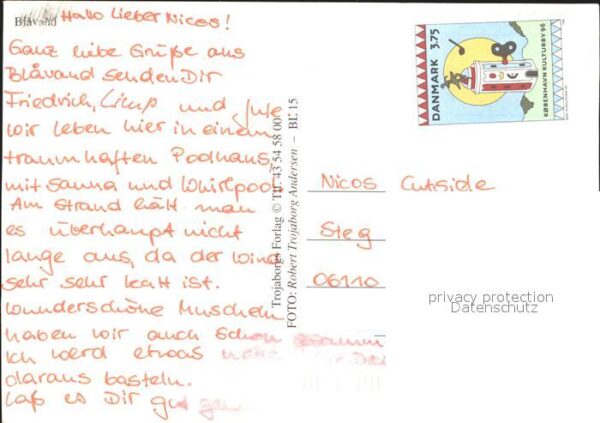 Blåvand
Hallo lieber Nicos!
Ganz liebe Grüße aus
Blåvand senden Dir
Friedrich, und
wir leben hier in einem
traumhaften Poolhaus
mit Sauna und Whirlpool
Am Strand hält man
es überhaupt nicht
lange aus, da der Wind
sehr sehr kalt ist.
Wunderschöne Muscheln
haben wir auch schon
Ich werd etwas
daraus basteln.
Laß es Dir gut
Trojaborgs Forlag © Tlf. 43 54 58 00
FOTO: Robert Trojaborg Andersen – BL 15
DANMARK 3.75
KØBENHAVN KULTURBY 96
Nicos
Steg
06110
privacy protection
Datenschutz